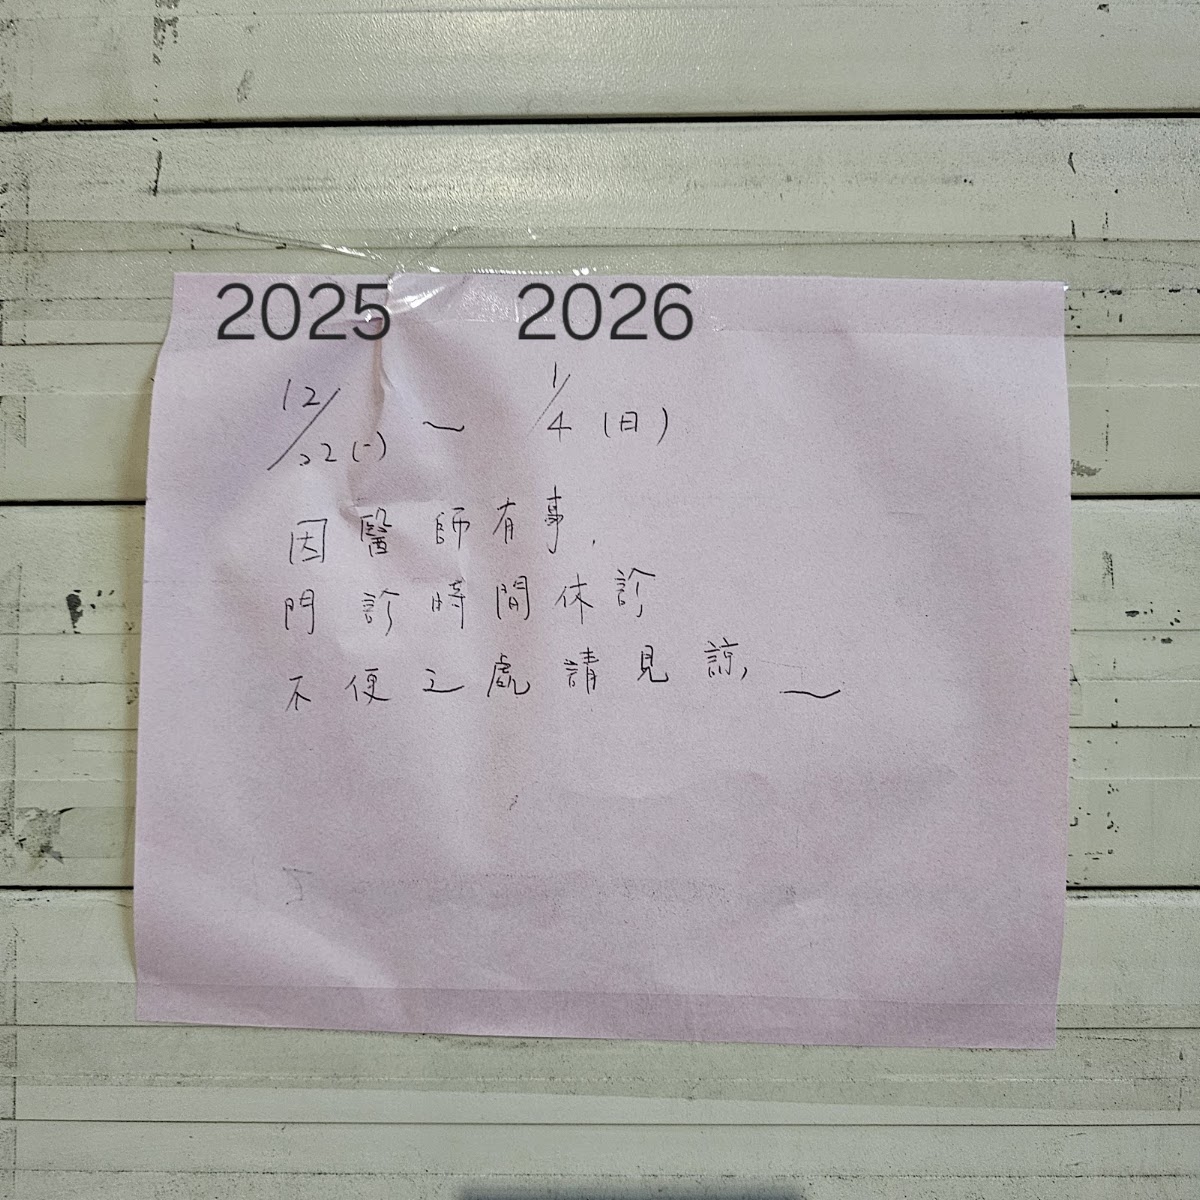 2025 2026
12/22(一) ~ 1/4(日)
因醫師有事,
門診時間休診
不便之處請見諒, ~